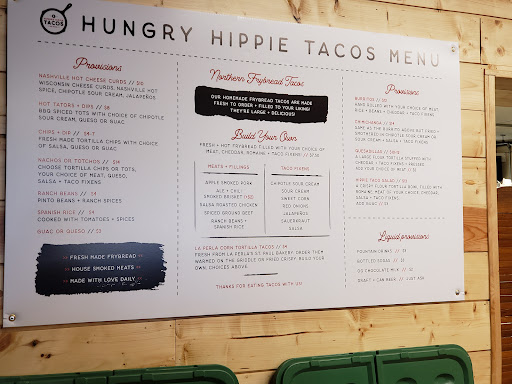 TACOS
HUNGRY HIPPIE TACOS MENU
Provisions
NASHVILLE HOT CHEESE CURDS // $10
WISCONSIN CHEESE CURDS, NASHVILLE HOT
SPICE, CHIPOTLE SOUR CREAM, JALAPEÑOS
HOT TATORS + DIPS // $8
BBQ SPICED TOTS WITH CHOICE OF CHIPOTLE
SOUR CREAM, QUESO OR GUAC
CHIPS + DIP //
FRESH MADE TORTILLA CHIPS WITH CHOICE
OF SALSA, QUESO OR GUAC
NACHOS OR TOTCHOS // $14
CHOOSE TORTILLA CHIPS OR TOTS,
YOUR CHOICE OF MEAT, QUESO,
SALSA + TACO FIXENS
RANCH BEANS // $4
PINTO BEANS + RANCH SPICES
SPANISH RICE // $4
COOKED WITH TOMATOES + SPICES
GUAC OR QUESO // $3
FRESH MADE FRYBREAD
HOUSE SMOKED MEATS
MADE WITH LOVE DAILY
Northern Frybread Tacos
OUR HOMEMADE FRYBREAD TACOS ARE MADE
FRESH TO ORDER + FILLED TO YOUR LIKING!
THEY'RE LARGE + DELICIOUS!
Build Your Own
FRESH + HOT FRYBREAD FILLED WITH YOUR CHOICE OF
MEAT, CHEDDAR, ROMAINE + TACO FIXENS //
MEATS + FILLINGS
APPLE SMOKED PORK
ALE + CHILI
SMOKED BRISKET
SALSA ROASTED CHICKEN
SPICED GROUND BEEF
RANCH BEANS +
SPANISH RICE
TACO FIXENS
CHIPOTLE SOUR CREAM
SOUR CREAM
SWEET CORN
RED ONIONS
JALAPEÑOS
SAUERKRAUT
SALSA
LA PERLA CORN TORTILLA TACOS // $4
FRESH FROM LA PERLA'S ST. PAUL BAKERY. ORDER THEM
WARMED ON THE GRIDDLE OR FRIED CRISPY. BUILD YOUR
OWN, CHOICES ABOVE.
THANKS FOR EATING TACOS WITH US!
Provisions
BURRITOS //
HAND ROLLED WITH YOUR CHOICE OF MEAT,
RICE + BEANS + CHEDDAR + TACO FIXENS
CHIMICHANGA //
SAME AS THE BURRITOS ABOVE BUT FRIED +
SMOTHERED IN CHIPOTLE SOUR CREAM OR
SOUR CREAM + SALSA + TACO FIXENS
QUESADILLAS //
A LARGE FLOUR TORTILLA STUFFED WITH
CHEDDAR + TACO FIXENS + CRISPED
ADD YOUR CHOICE OF MEAT //
HIPPIE TACO SALAD //
A CRISPY FLOUR TORTILLA BOWL FILLED WITH
ROMAINE, MEAT OF YOUR CHOICE, CHEDDAR,
SALSA + TACO FIXENS
ADD GUAC //
Liquid provisions
FOUNTAIN DRINKS //
BOTTLED SODAS //
CHOCOLATE MILK // $2
DRAFT + CAN BEER // JUST ASK